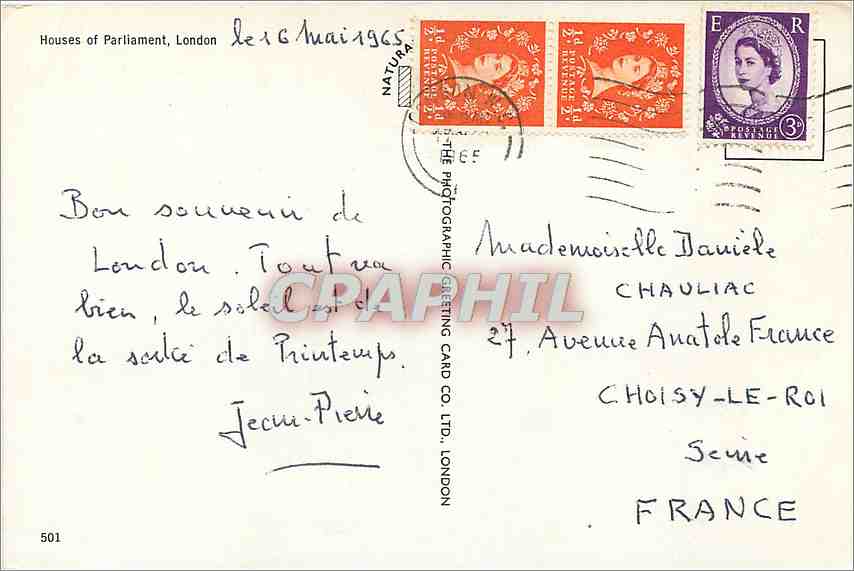 Houses of Parliament, London
le 16 Mai 1965
NATURA
1/2d POSTAGE REVENUE 1/2d
1/2d POSTAGE REVENUE 1/2d
E R
POSTAGE REVENUE 3D
1965
Bon souvenir de
London. Tout va
bien, le soleil est de
la sortie de Printemps.
Jean-Pierre
THE PHOTOGRAPHIC GREETING CARD CO. LTD., LONDON
Mademoiselle Danièle
CHAULIAC
27, Avenue Anatole France
CHOISY-LE-ROI
Seine
FRANCE
CPAPHIL
501